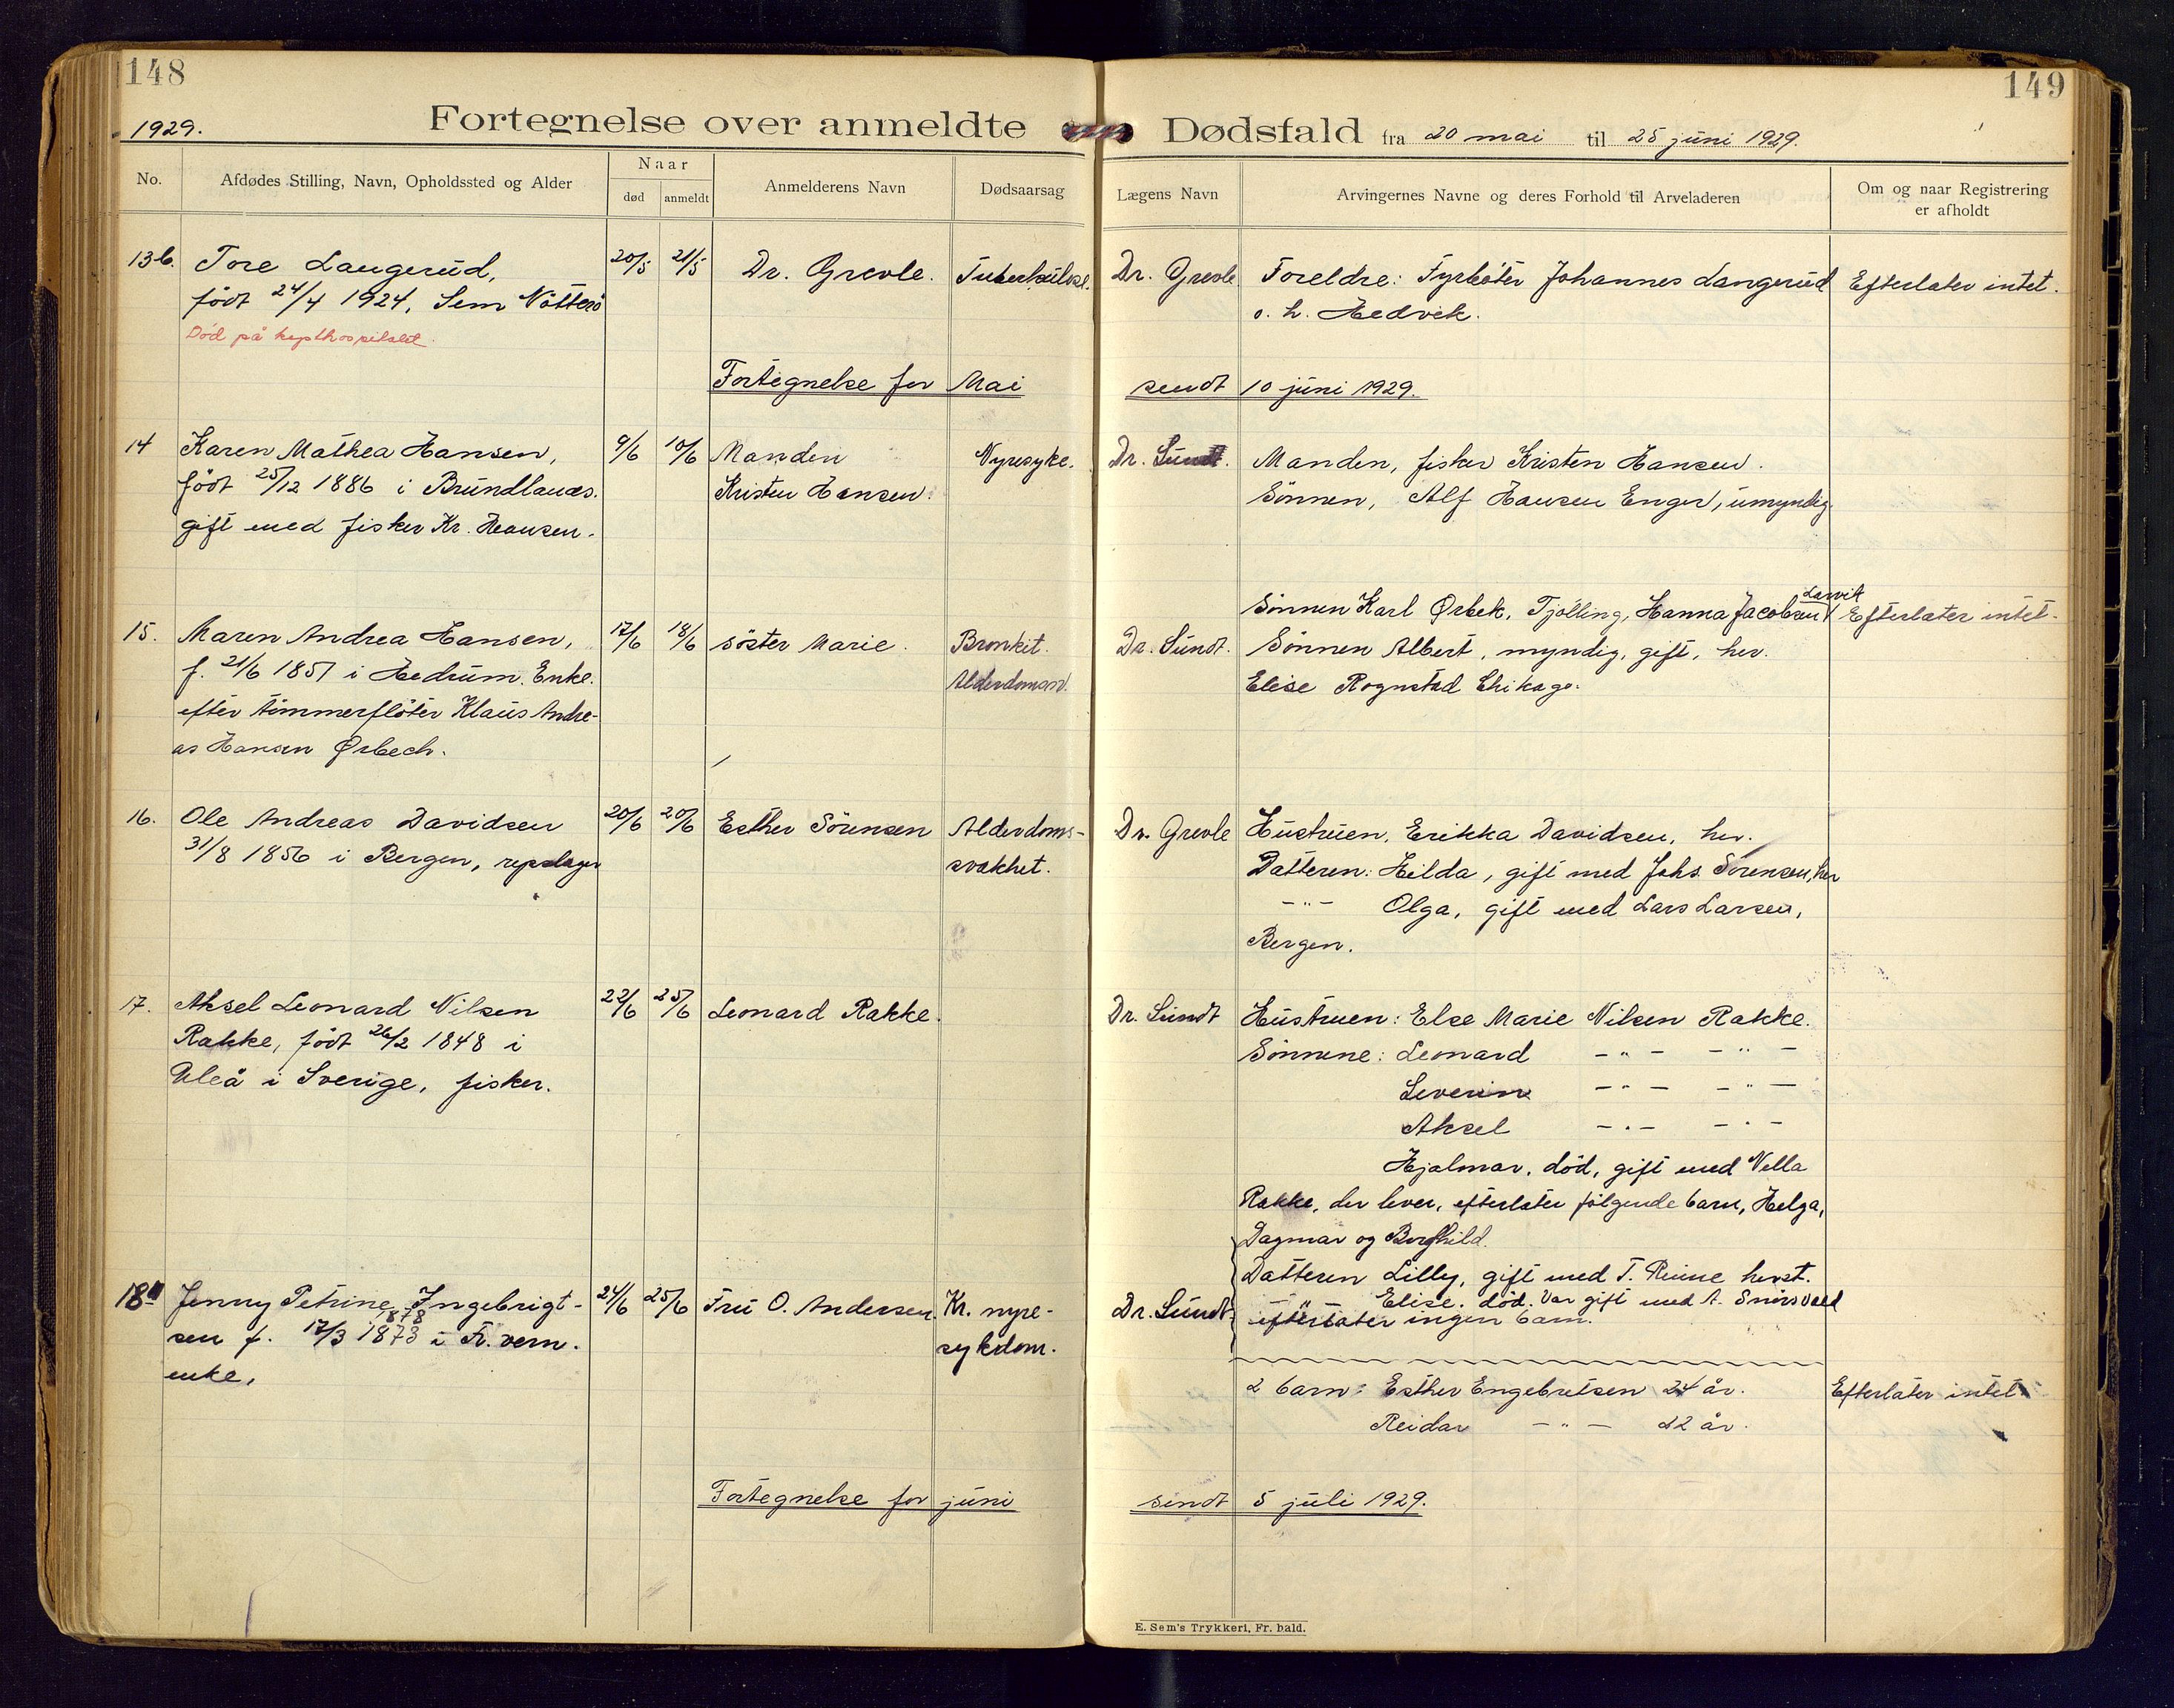 148
149
1929.
Fortegnelse over anmeldte Dødsfald fra 20 mai til 25 juni 1929.
No.
Afdødes Stilling, Navn, Opholdssted og Alder
Naar
død
anmeldt
Anmelderens Navn
Dødsaarsag
Lægens Navn
Arvingernes Navne og deres Forhold til Arveladeren
Om og naar Registrering
er afholdt
13b. Tore Langerud, 20/5 21/5 Dr. Grevle. Tuberkulose. Dr. Grevle Foreldre: Fyrbøter Johannes Langerud Efterlater intet.
født 24/4 1924, Sem Nøtterø o. h. Hedvik.
Død på hospitalet.
Fortegnelse for Mai sendt 10 juni 1929.
14 Karen Mathea Hansen, 9/6 10/6 Manden Nyresyke. Dr. Sundt. Manden, fisker Kristen Hansen.
født 25/12 1886 i Brundlanæs. Kristen Hansen. Sønnen, Alf Hansen Enger, umyndig.
gift med fisker Kr. Hansen.
Larvik
Sønnen Karl Ørbek, Tjølling, Hanna Jacobsen Efterlater intet.
15. Maren Andrea Hansen, 17/6 18/6 søster Marie. Bronkit. Dr. Sundt. Sønnen Albert, myndig, gift, her.
f. 21/6 1851 i Hedrum. Enke. Alderdomssv. Elise Rognstad Chikago.
efter tømmerfløter Klaus Andre-
as Hansen Ørbech.
16. Ole Andreas Davidsen 20/6 20/6 Esther Sørensen Alderdoms- Dr. Grevle Hustruen, Erikka Davidsen, her.
31/8 1856 i Bergen, repslager svakhet. Datteren: Hilda, gift med Johs. Sørensen, her
-"- Olga, gift med Lars Larsen,
Bergen.
17. Aksel Leonard Nilsen 22/6 25/6 Leonard Rakke. Dr. Sundt Hustruen: Else Marie Nilsen Rakke.
Rakke, født 26/2 1848 i Sønnene: Leonard -"- -"-
Uleå i Sverige, fisker. Severin -"- -"-
Aksel -"- -"-
Hjalmar, død, gift med Nella
Rakke, der lever, efterlater følgende barn, Helga,
Dagmar og Borghild.
Datteren Lilly, gift med T. Riise herst.
18 Jenny Petrine Ingebrigt- 24/6 25/6 Fru O. Andersen. Kr. nyre- Dr. Sundt. " Elise. død. Var gift med A. Snörsvald
1878
sen f. 17/3 1873 i Fr. vern. sykdom. efterlater ingen barn.
enke.
2 barn: Esther Engebretsen 24 år. Efterlater intet
Reidar -"- 22 år.
Fortegnelse for juni sendt 5 juli 1929.
E. Sem's Trykkeri, Fr. hald.